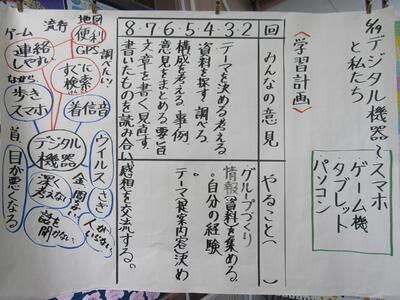 5/19 デジタル機器〜
と私たち
スマホ
ゲーム機
タブレット
パソコン
《学習計画》
回 2 3 4 5 6 7 8
みんなの意見
テーマを決める 考える
資料を探す 調べる
構成を考える 事例
意見をまとめる 要旨
文章を書く 見直す
書いたものを読み合い感想を交流する。
やること( )
グループづくり
情報(資料)を集める
。自分の経験
テーマ(提案内容)決め
地図
便利
GPS
流行
ゲーム
連絡
しやすい
調べたい
すぐに
検索
ながら
歩き
スマホ
着信音
デジタル
機器
ウイルス
さぎ
金
深く
考えない
話を
聞かない
人がいらない
首
目が悪くなる